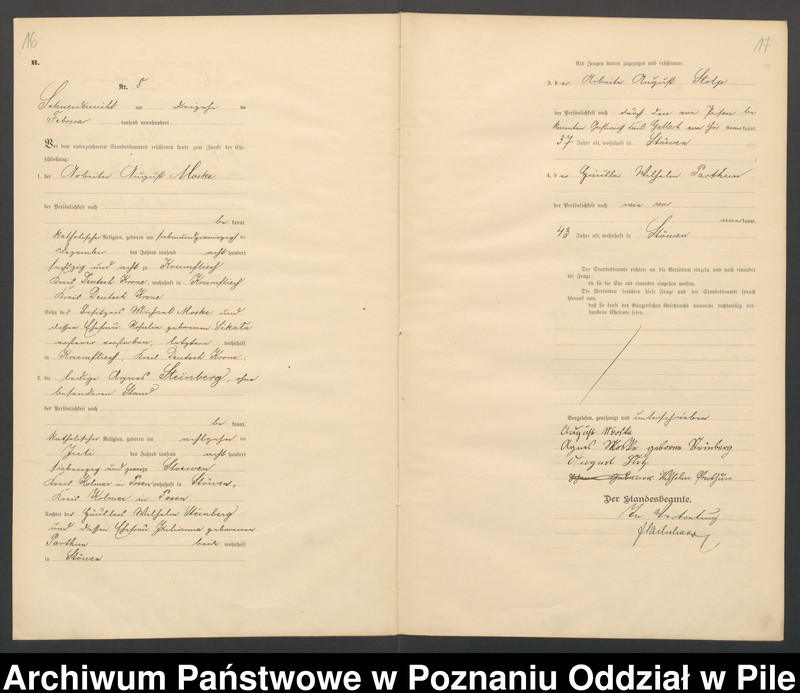 16
B.
Nr. 8
am dreizehn ten
Februar tausend neunhundert
Vor dem unterzeichneten Standesbeamten erschienen heute zum Zwecke der Ehe-
schließung:
1. der Arbeiter August Moske
der Persönlichkeit nach
be kannt,
katholischer Religion, geboren am siebenundzwanzigsten
Dezember des Jahres tausend acht hundert
sechzig und acht zu Krumfliess
Kreis Deutsch Krone, wohnhaft in Krumfliess
Kreis Deutsch Krone
Sohn des Besitzers Michael Moske und
dessen Ehefrau Rosalia geborenen
ersterer verstorben, letztere wohnhaft
in Krumfliess, Kreis Deutsch Krone.
2. die ledige Agnes Steinberg, ohne
besonderen Stand
der Persönlichkeit nach
be kannt,
katholischer Religion, geboren am achtzehn ten
Juli des Jahres tausend acht hundert
siebenzig und zu Stoewen
Kreis Kolmar in Posen wohnhaft in Stöwen,
Kreis Kolmar in Posen
Tochter des Häuslers Wilhelm Steinberg
und dessen Ehefrau Julianna geborenen
Parthun beide wohnhaft
in Stöwen
17
Als Zeugen waren zugezogen und erschienen:
3. der Arbeiter August Stolp
der Persönlichkeit nach durch den von Person be
kannten Karl von hier anerkannt,
37 Jahre alt, wohnhaft in Stöwen
4. der Häusler Wilhelm Parthun
der Persönlichkeit nach wie vor
anerkannt,
43 Jahre alt, wohnhaft in Stöwen
Der Standesbeamte richtete an die Verlobten einzeln und nach einander
die Frage:
ob sie die Ehe mit einander eingehen wollen.
Die Verlobten bejahten diese Frage und der Standesbeamte sprach
hierauf aus,
daß sie kraft des Bürgerlichen Gesetzbuchs nunmehr rechtmäßig ver-
bundene Eheleute seien.
Vorgelesen, genehmigt und unterschrieben
August Moske
Agnes Moske geborne Steinberg
August Stolp
Wilhelm Parthun
Der Standesbeamte.
In Vertretung
Archiwum Państwowe w Poznaniu Oddział w Pile